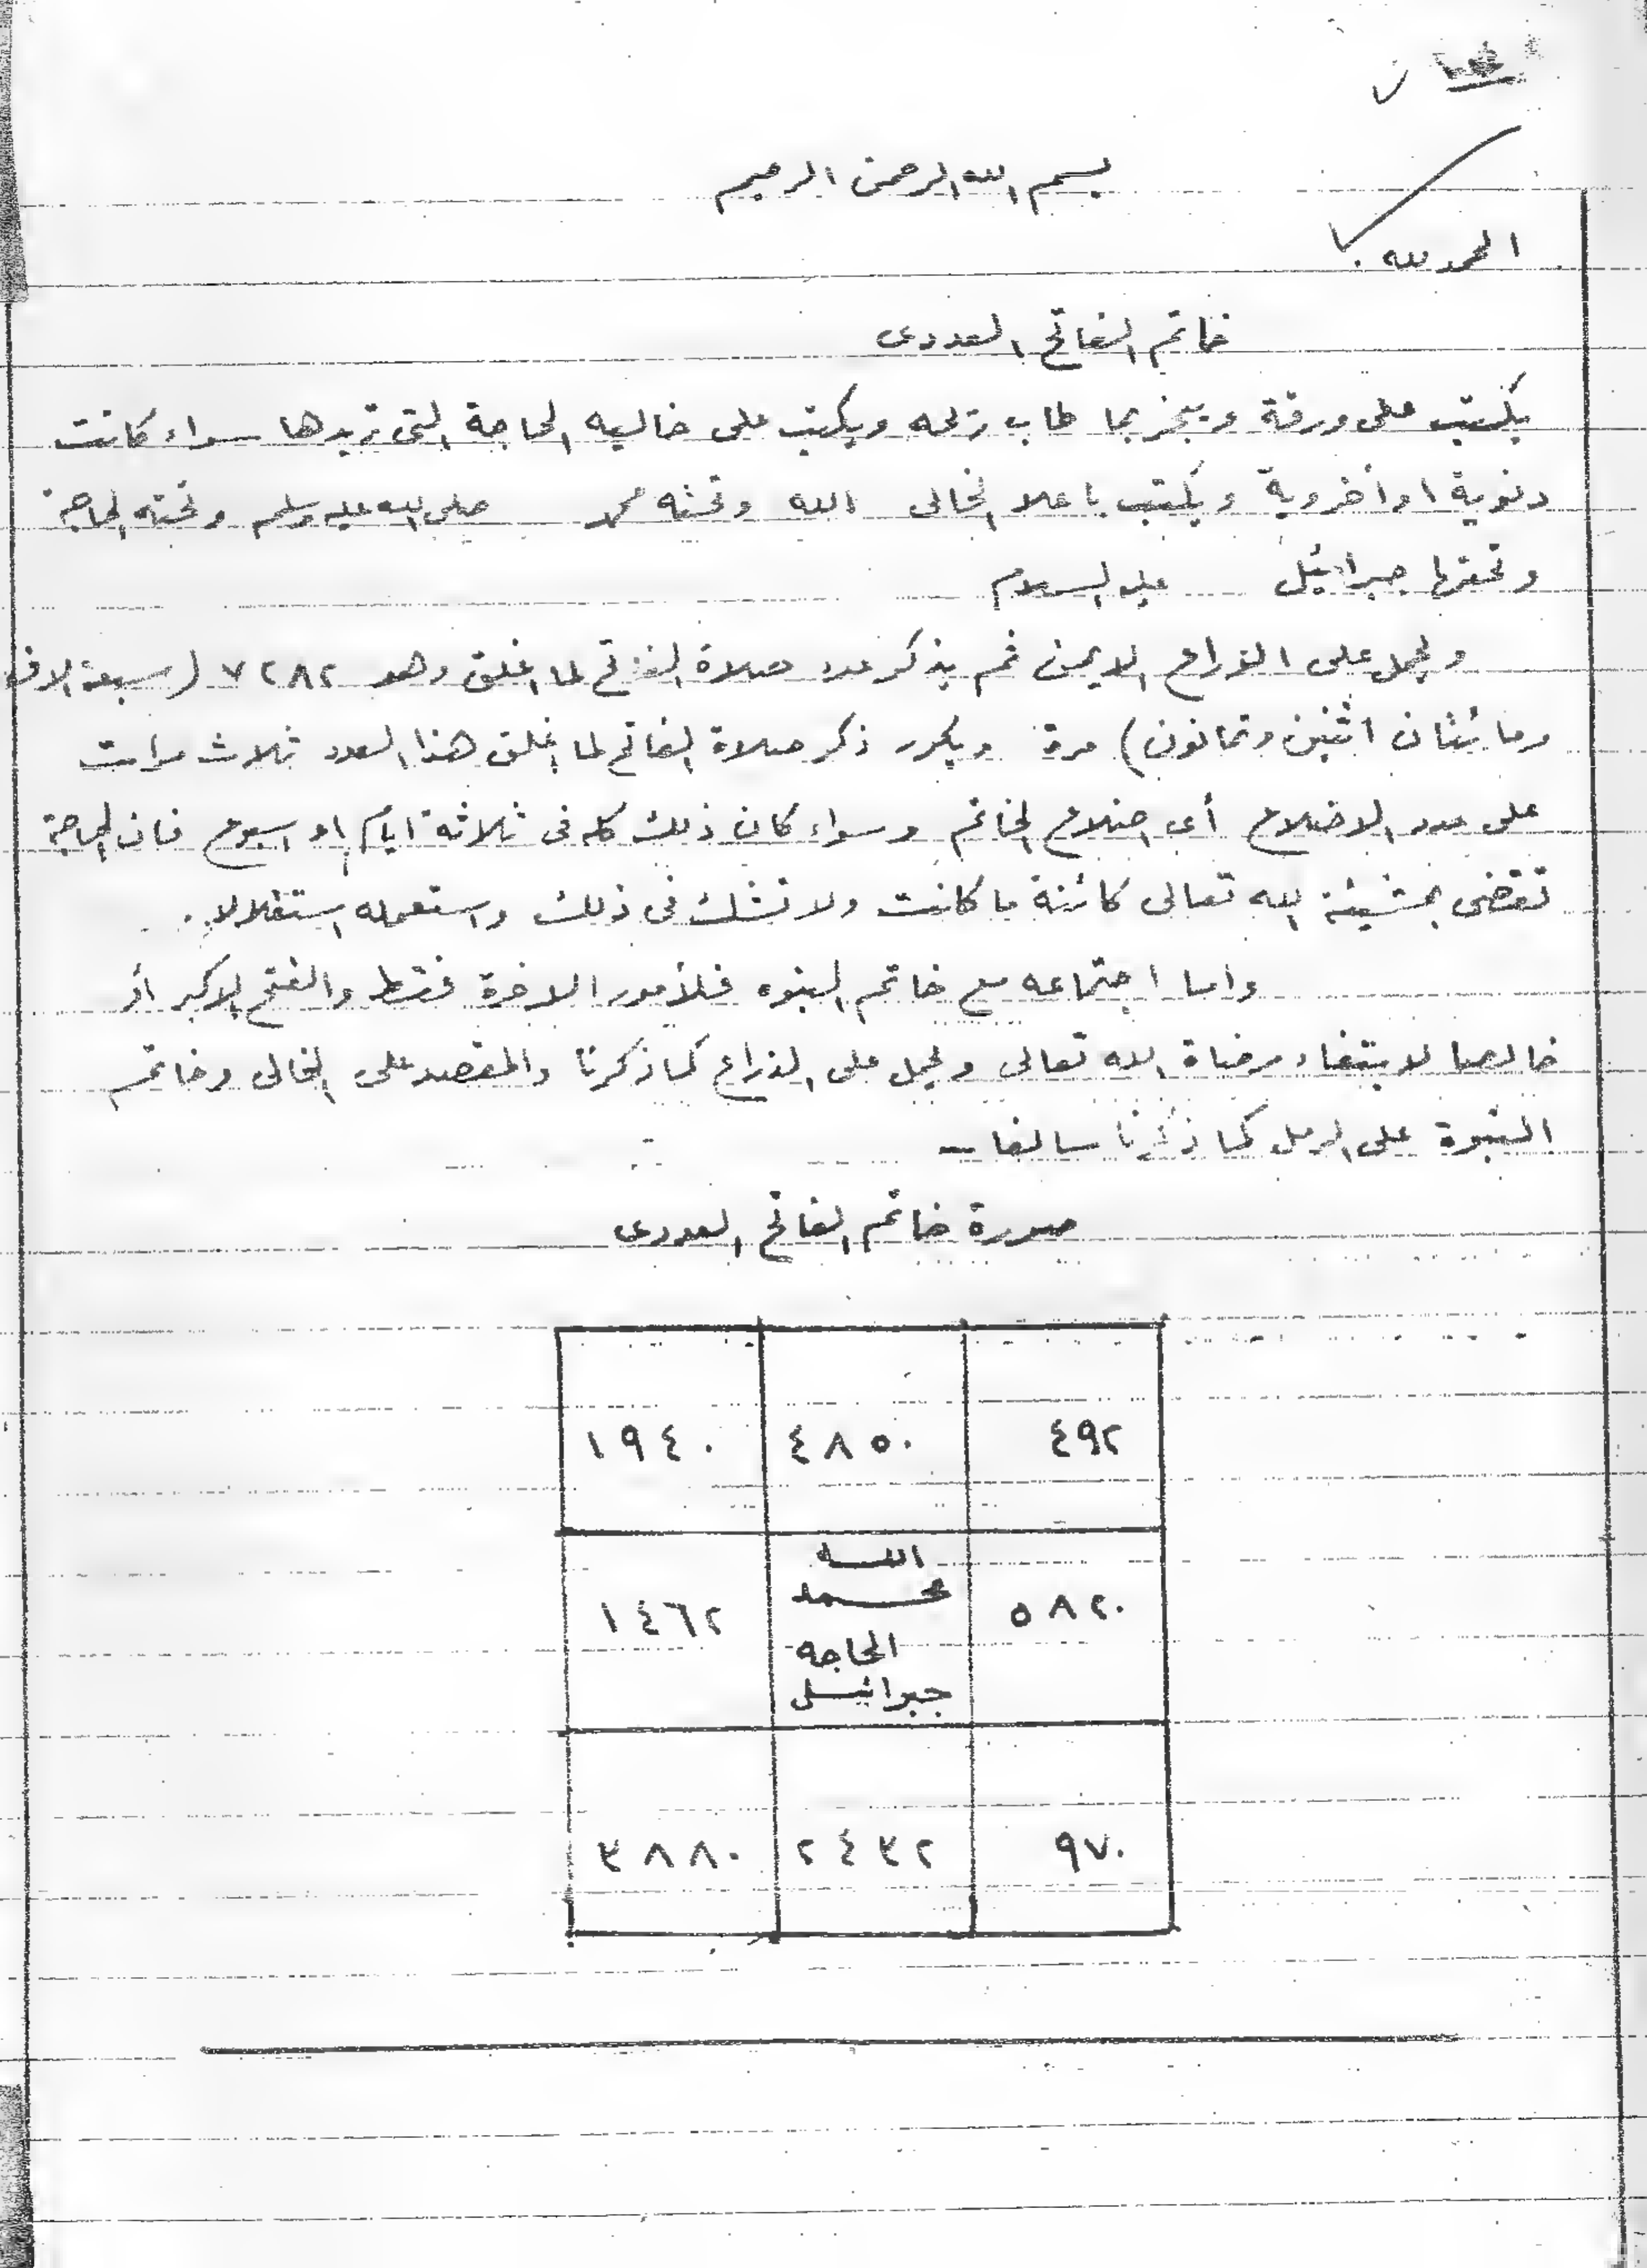 بسم الله الرحمن الرحيم
الحمد لله
خاتم الفاتح العددى
يكتب على ورقة ويبخر بما طاب ريحه ويكتب على خاليه الحاجة التى تريدها سواء كانت
دنوية او أخروية ويكتب باعلا الخالى الله وتحته محمد صلى الله عليه وسلم وتحته الحاجة
وتحتها جبرائيل عليه السلام
ويحمل على الذراع الايمن ثم يذكر عدد صلاة الفاتح لما اغلق وهو ٧٢٨٢ (سبعة الاف
ومائتان اثنين وثمانون) مرة ويكرر ذكر صلاة الفاتح لما اغلق هذا العدد ثلاث مرات
على عدد الاضلاع أى اضلاع الخاتم وسواء كان ذلك كله فى ثلاثة ايام او اسبوع فان الحاجة
تقضى بمشيئة الله تعالى كائنة ما كانت ولا تشك فى ذلك واستعمله استقلالا.
واما اجتماعه مع خاتم النبوه فلأمور الاخرة فقط والفتح الاكبر أو
خالصا لابتغاء مرضاة الله تعالى ويحمل على الذراع كما ذكرنا والمقصد على الخالى وخاتم
النبوة على الرمل كما ذكرنا سالفا -
صورة خاتم الفاتح العددى
٤٩٢ ٤٨٥٠ ١٩٤٠
الله
محمد
٥٨٢٠ ١٤٦٢
الحاجه
جبرائيل
٩٧٠ ٢٤٣٢ ٣٨٨٠